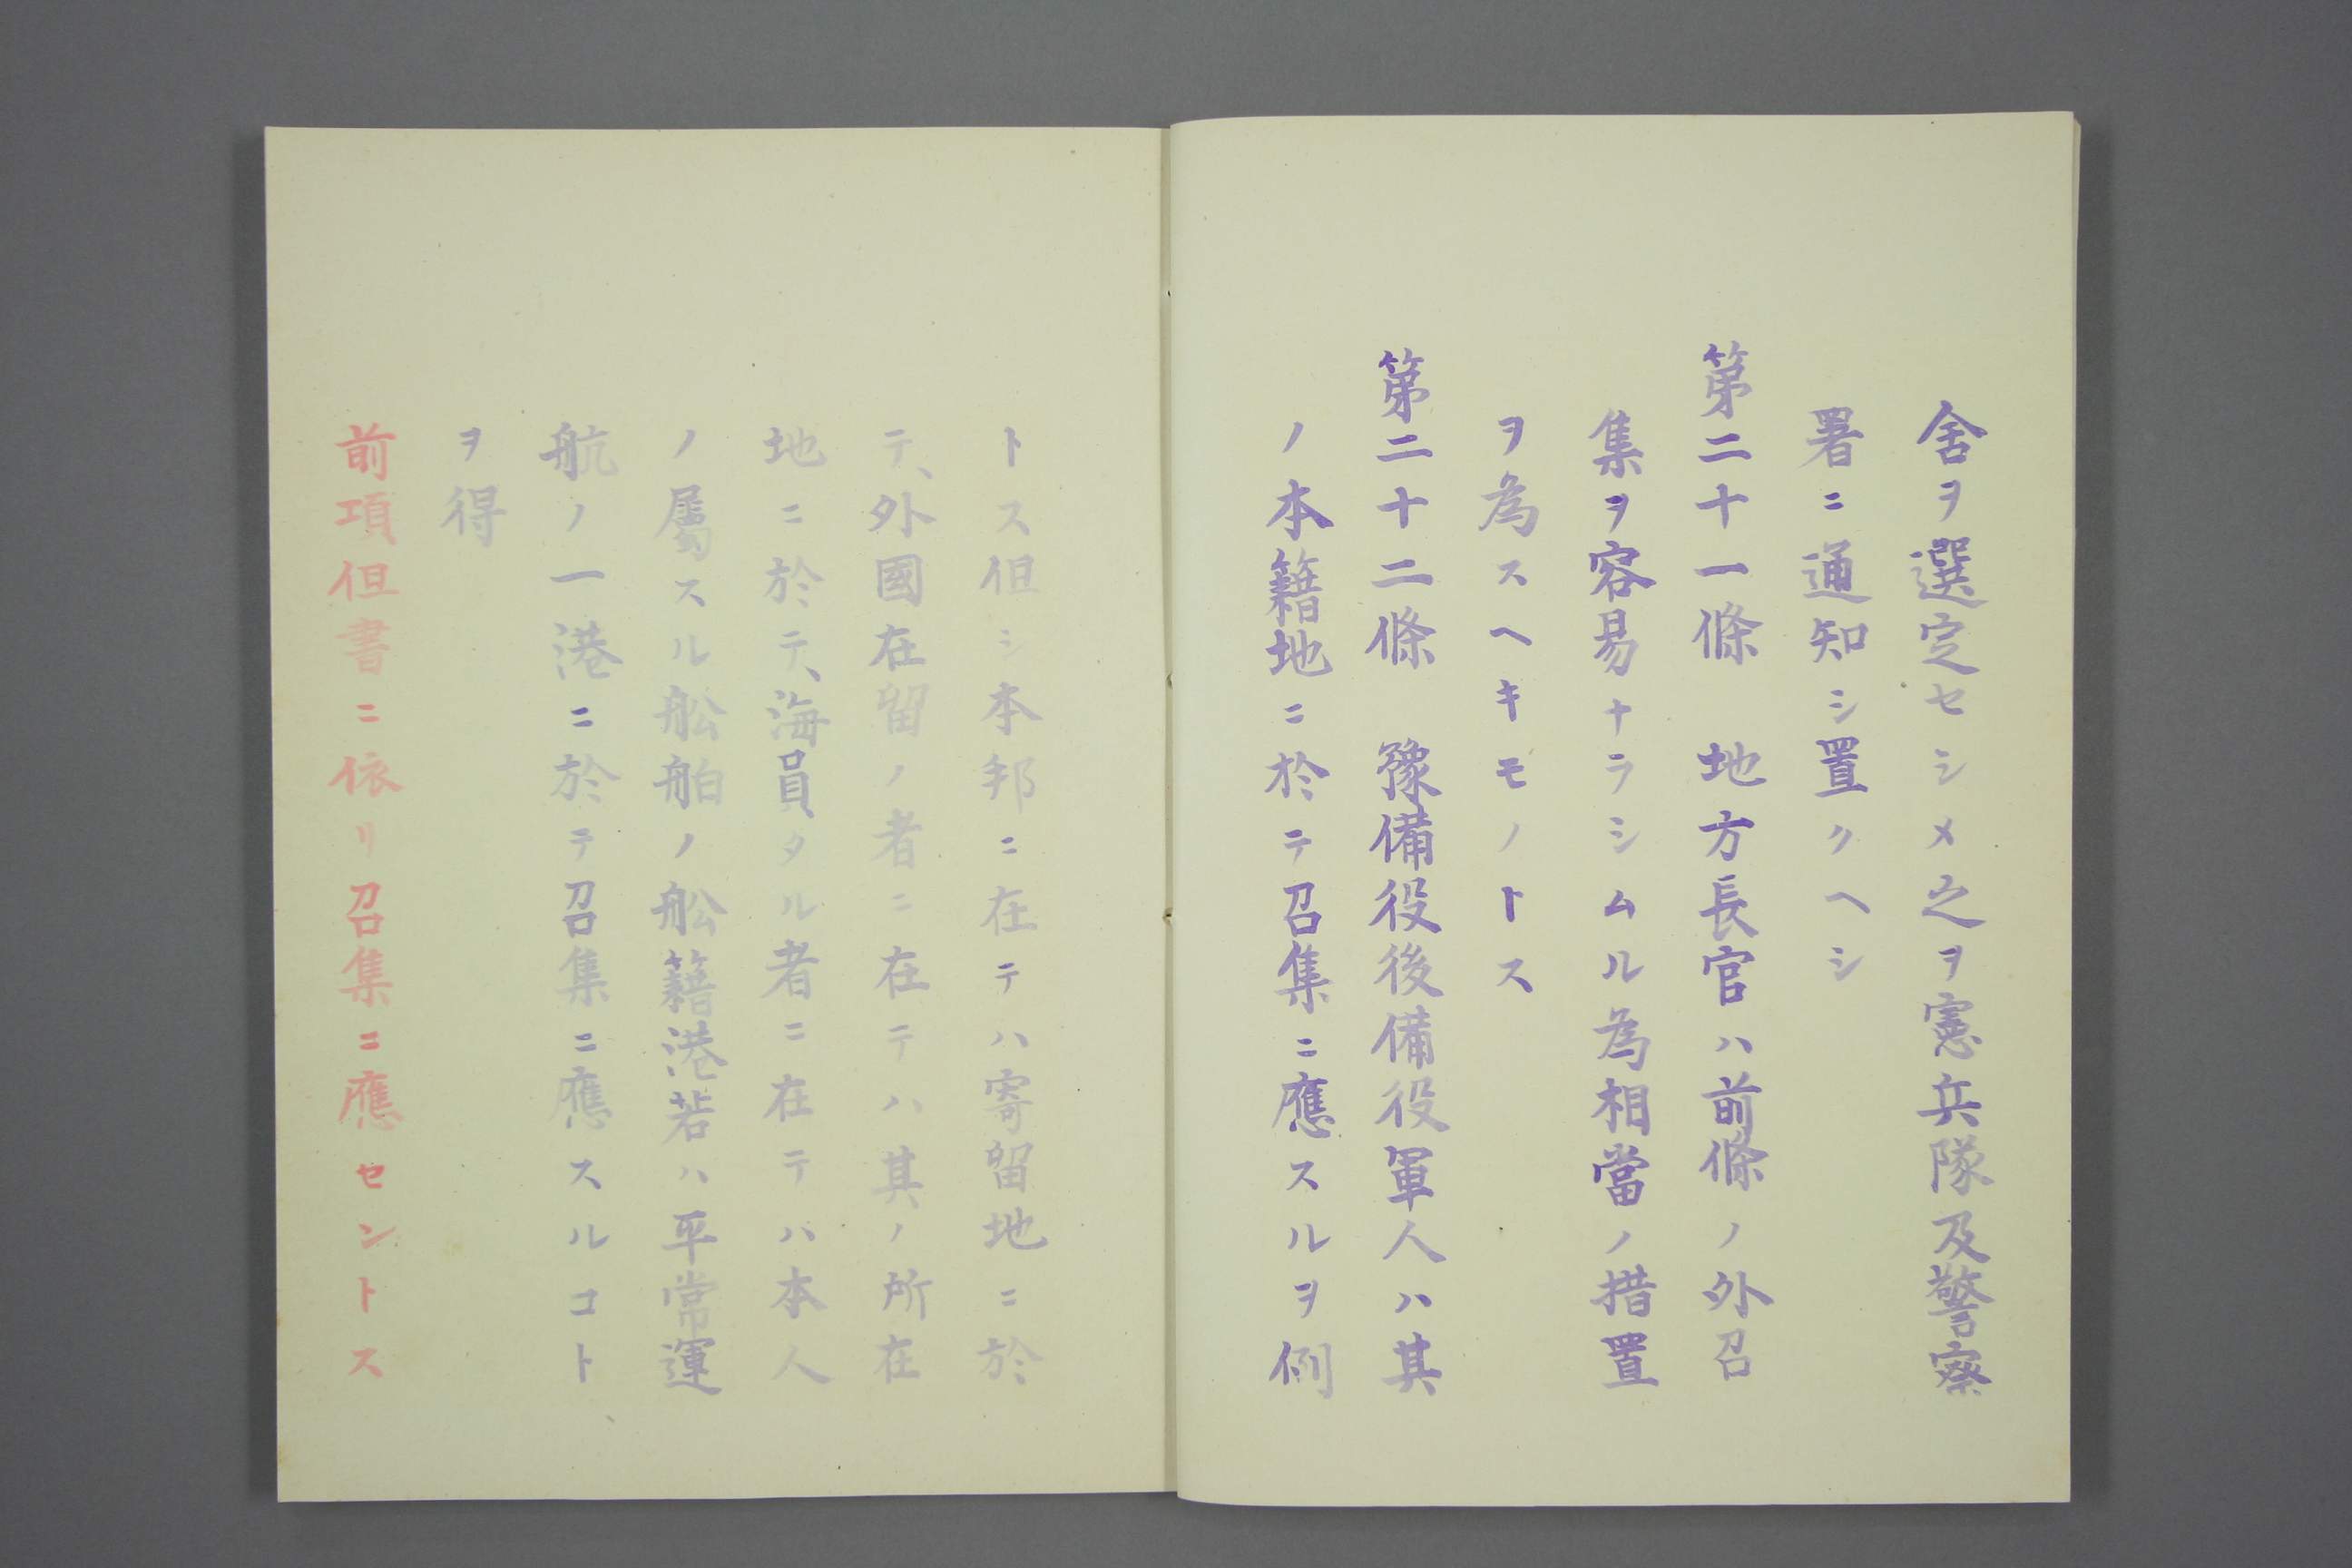 舍ヲ選定セシメ之ヲ憲兵隊及警察
署ニ通知シ置クヘシ
第二十一條　地方長官ハ前條ノ外召
集ヲ容易ナラシムル為相當ノ措置
ヲ為スヘキモノトス
第二十二條　豫備役後備役軍人ハ其
ノ本籍地ニ於テ召集ニ應スルヲ例
トス但シ本邦ニ在テハ寄留地ニ於
テ、外國在留ノ者ニ在テハ其ノ所在
地ニ於テ、海員タル者ニ在テハ本人
ノ屬スル舩舶ノ舩籍港若ハ平常運
航ノ一港ニ於テ召集ニ應スルコト
ヲ得
前項但書ニ依リ召集ニ應セントス